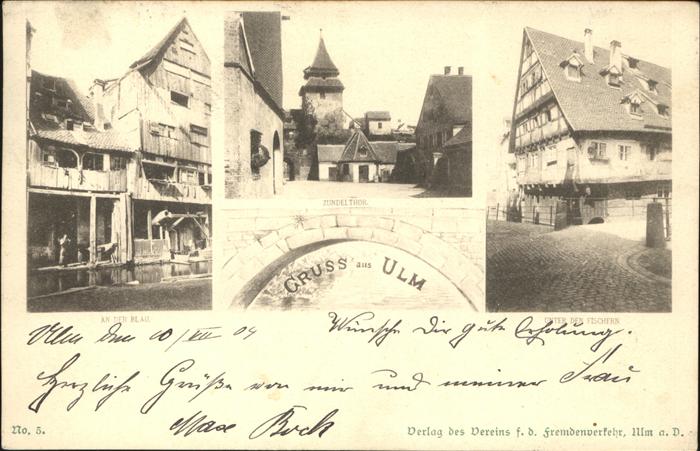 ZUNDELTHOR.
GRUSS aus ULM
AN DER BLAU.
UNTER DEN FISCHERN.
Ulm den 10/VII 04 Wünsche Dir gute Erholung.
Herzliche Grüße von mir und meiner Frau
Max Bock
No. 5.
Verlag des Vereins f. d. Fremdenverkehr, Ulm a. D.